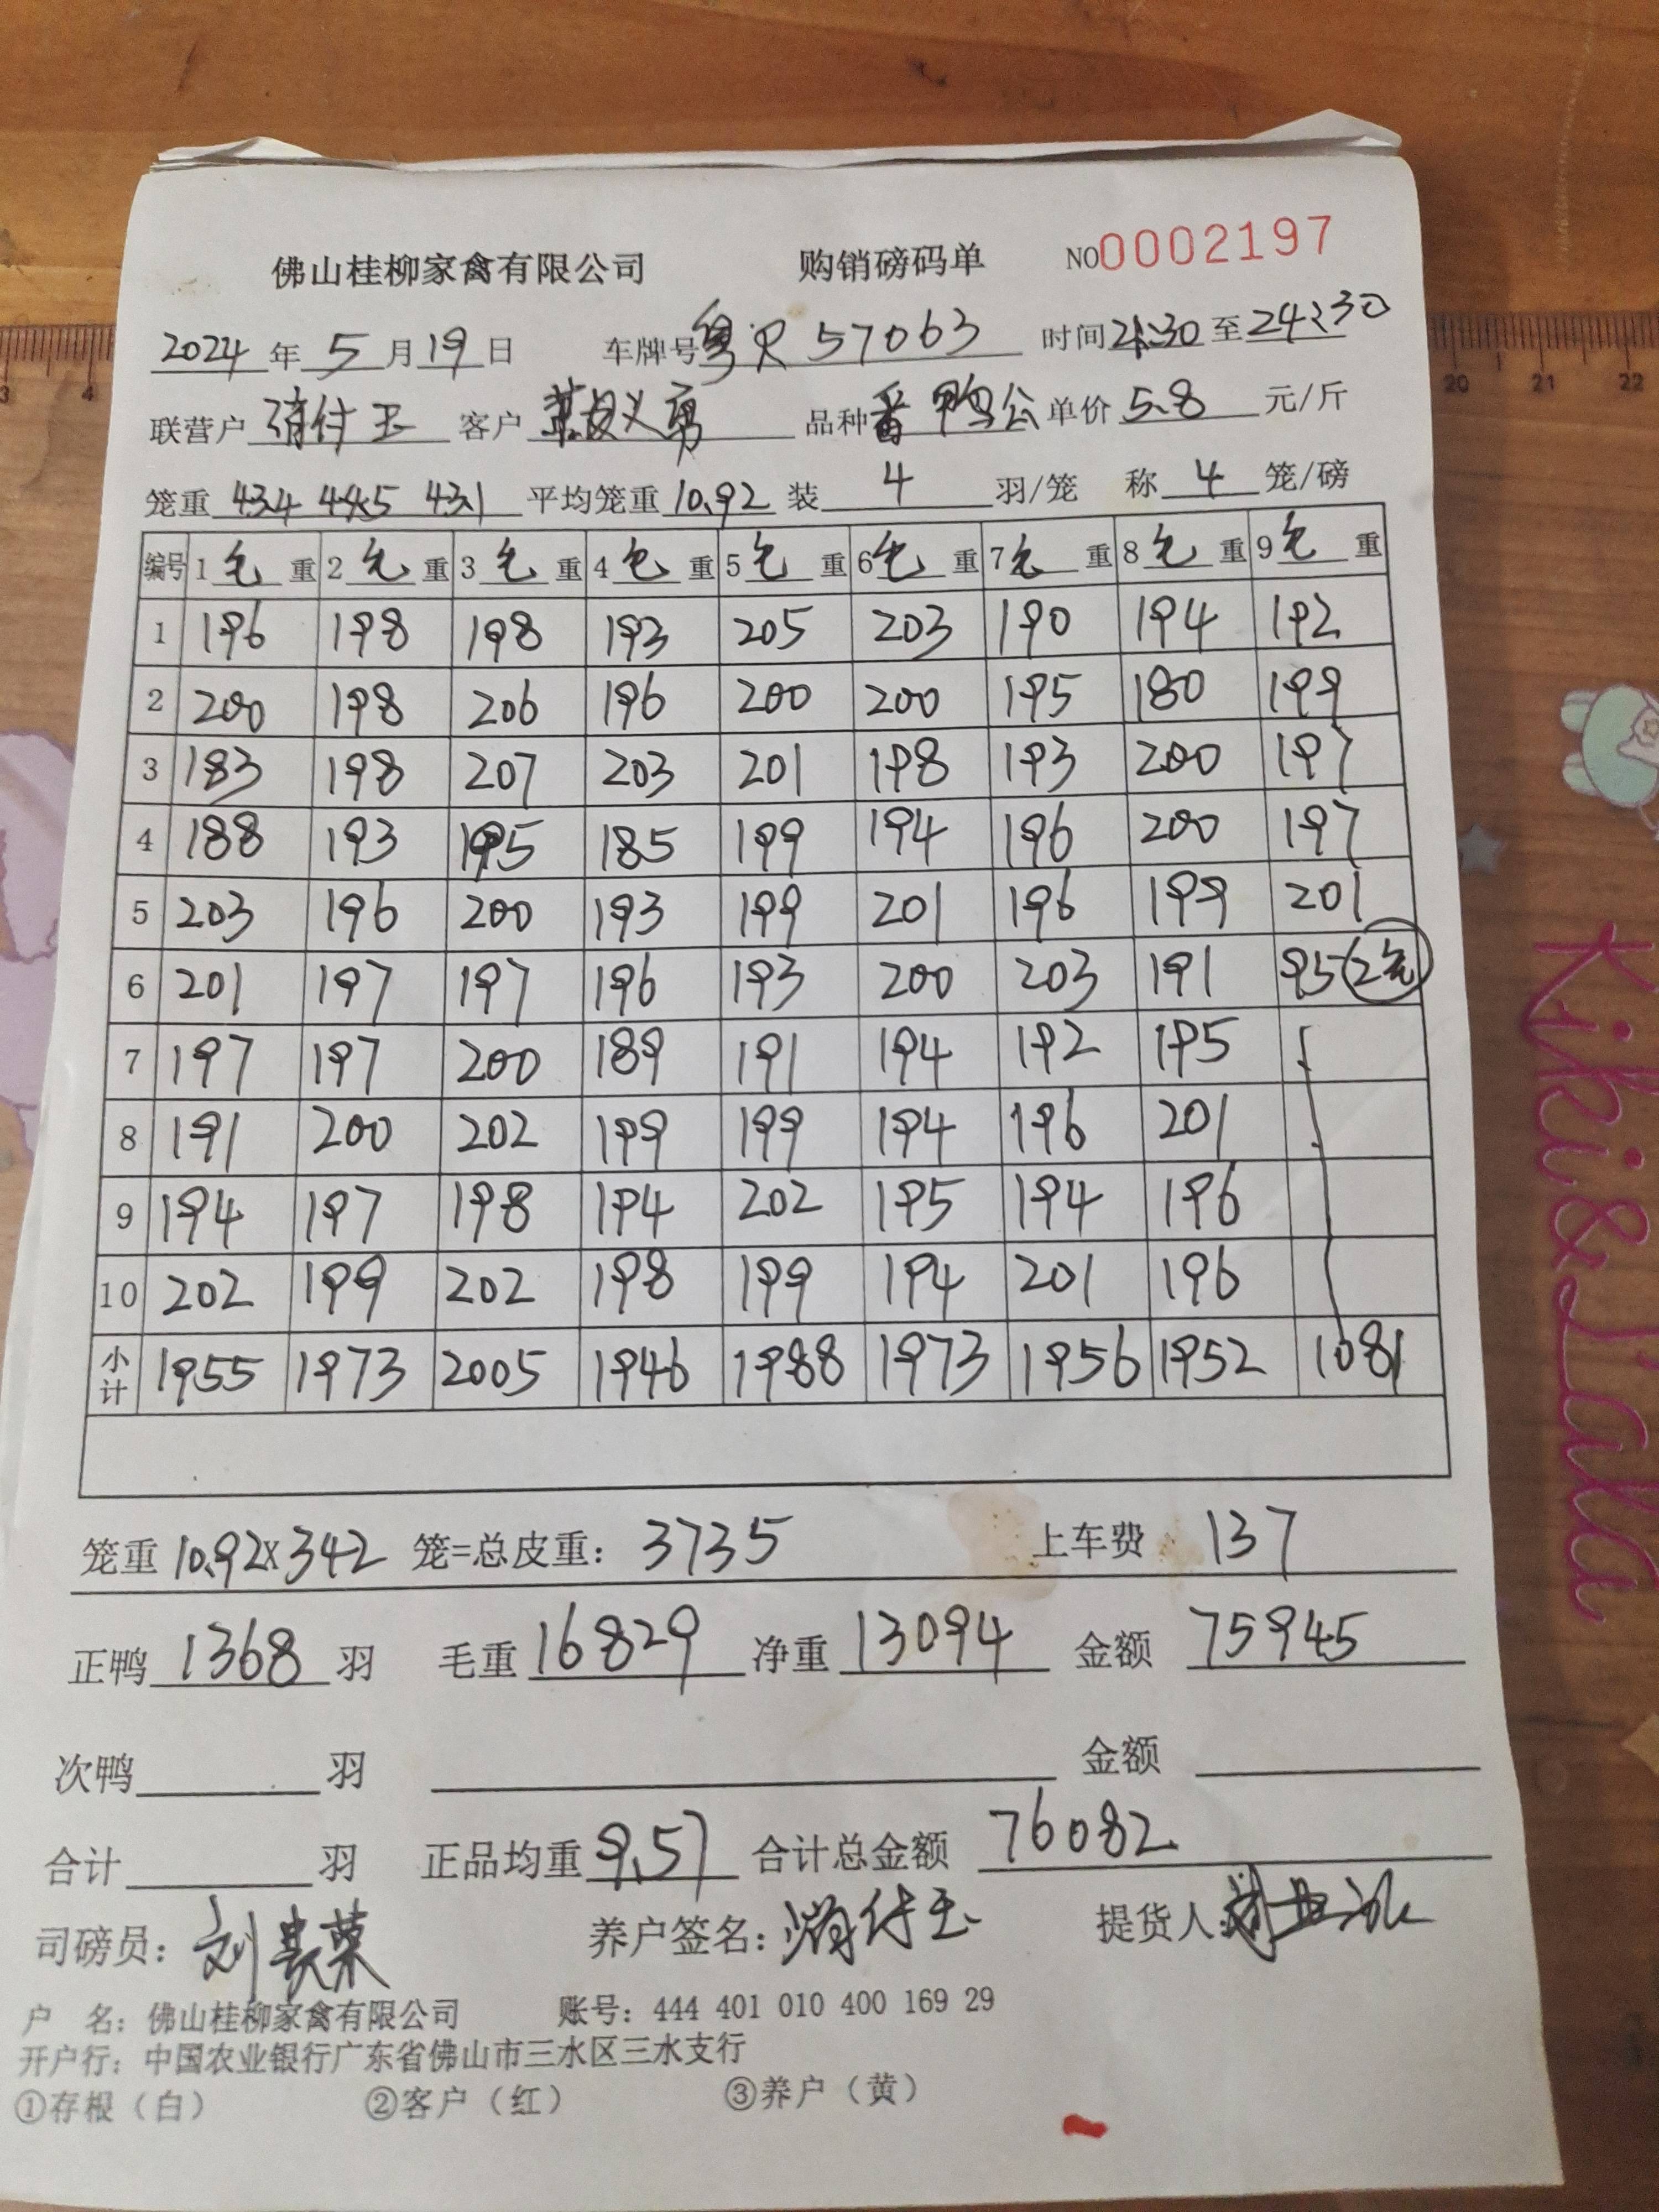 佛山桂柳家禽有限公司 购销磅码单 NO0002197
2024年5月19日 车牌号粤R 57063 时间21:30至24:30
联营户 付玉 客户 义勇 品种番鸭公 单价5.8元/斤
笼重 43.4 44.5 43.1 平均笼重10.92 装4羽/笼 称4笼/磅
编号 1毛重 2毛重 3毛重 4毛重 5毛重 6毛重 7毛重 8毛重 9毛重
1 196 198 198 193 205 203 190 194 192
2 200 198 206 196 200 200 195 180 199
3 183 198 207 203 201 198 193 200 197
4 188 193 195 185 199 194 196 200 197
5 203 196 200 193 199 201 196 199 201
6 201 197 197 196 193 200 203 191 95(2笼)
7 197 197 200 189 191 194 192 195
8 191 200 202 199 199 194 196 201
9 194 197 198 194 202 195 194 196
10 202 199 202 198 199 194 201 196
小计 1955 1973 2005 1946 1988 1973 1956 1952 1081
笼重10.92x342笼=总皮重：3735 上车费 137
正鸭1368羽 毛重16829 净重13094 金额75945
次鸭 羽 金额
合计 羽 正品均重9.57 合计总金额76082
司磅员：刘 荣 养户签名： 付玉 提货人：
户 名：佛山桂柳家禽有限公司 账号：444 401 010 400 169 29
开户行：中国农业银行广东省佛山市三水区三水支行
①存根（白） ②客户（红） ③养户（黄）
Kiki&Lala
3 4 20 21 22